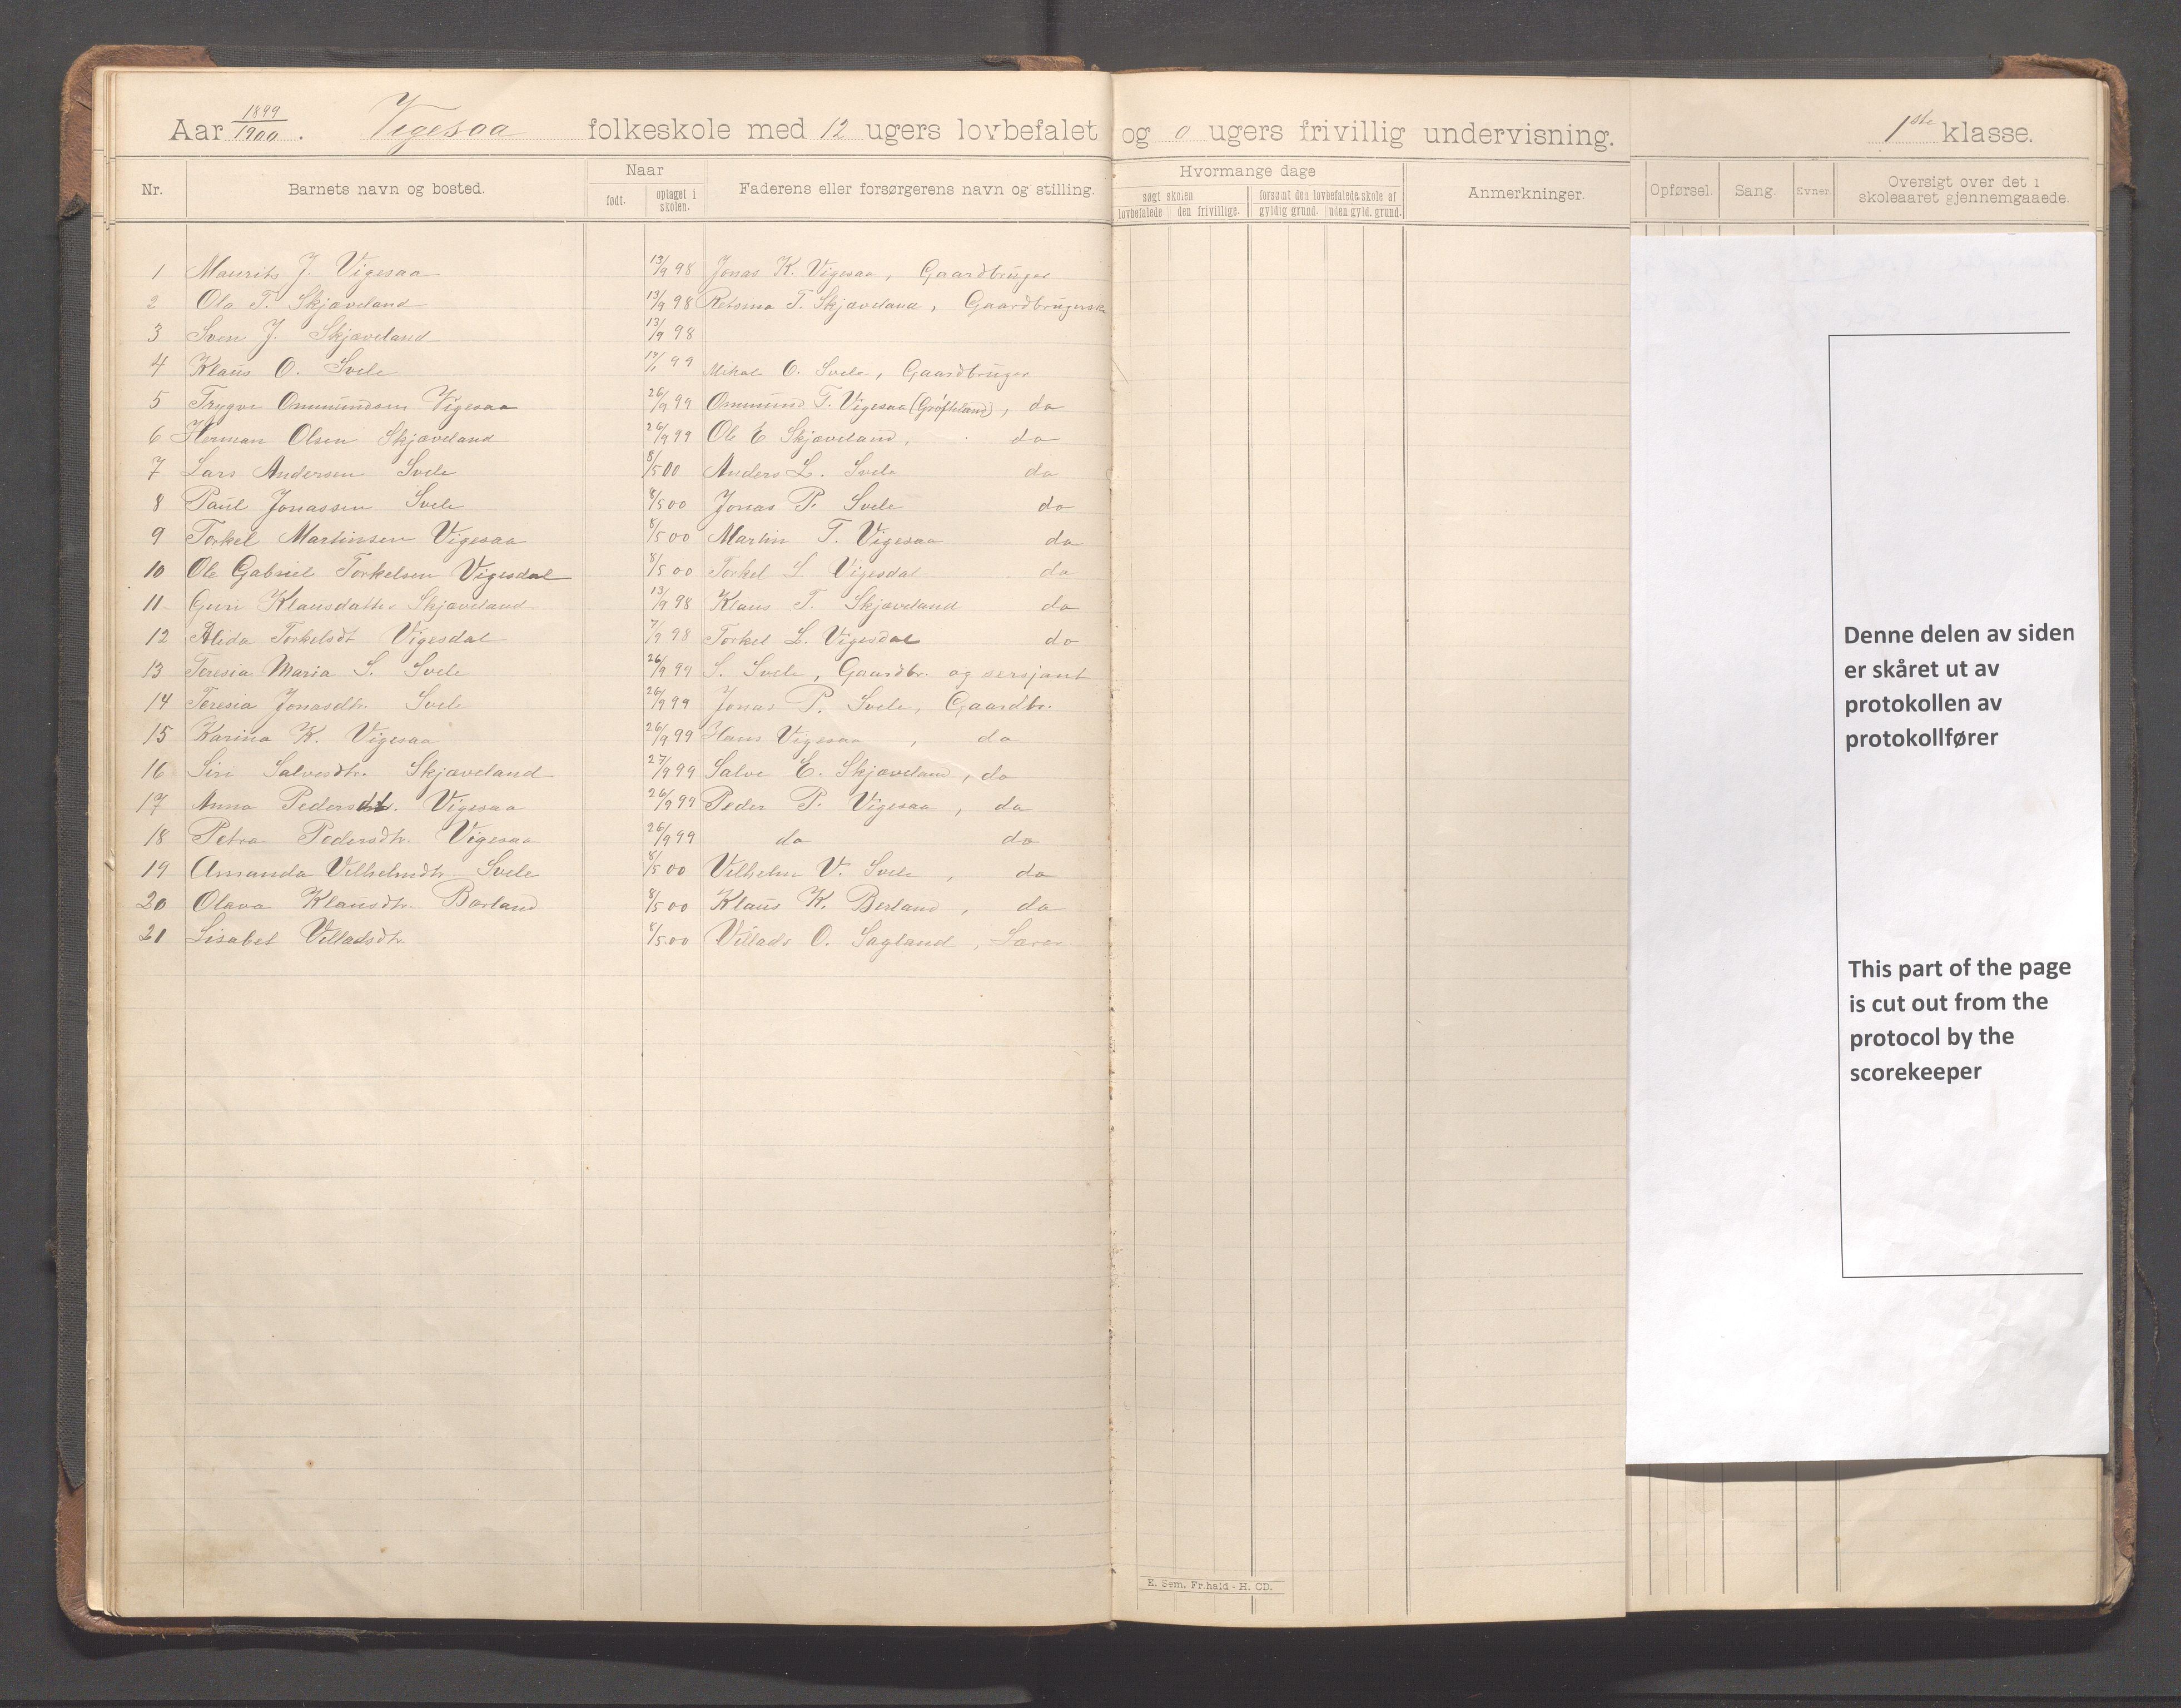 Aar 1899/1900. Vigesaa folkeskole med 12 ugers lovbefalet og 0 ugers frivillig undervisning. 1ste klasse.
Nr. Barnets navn og bosted. Naar født. optaget i skolen. Faderens eller forsørgerens navn og stilling. Hvormange dage søgt skolen lovbefalede den frivillige. forsømt den lovbefalede skole af gyldig grund. uden gyld. grund. Anmerkninger. Opførsel. Sang. Evner. Oversigt over det i skoleaaret gjennemgaaede.
1 Maurits J. Vigesaa 13/9 98 Jonas K. Vigesaa, Gaardbruger
2 Ola T. Skjæveland 13/9 98 T. Skjæveland, Gaardbrugerske
3 Sven J. Skjæveland 13/9 98
4 Klaus O. Svele 99 Mikal O. Svele, Gaardbruger
5 Trygve Ommundsen Vigesaa 26/9 99 Ommund T. Vigesaa (Grøfteland), do
6 Herman Olsen Skjæveland 26/9 99 Ole E Skjæveland, do
7 Lars Andersen Svele 8/5 00 Anders L. Svele do
8 Paul Jonassen Svele 8/5 00 Jonas P. Svele do
9 Torkel Martinsen Vigesaa 8/5 00 Martin T. Vigesaa do
10 Ole Gabriel Torkelsen Vigesdal 8/5 00 Torkel L Vigesdal do
11 Guri Klausdatter Skjæveland 13/9 98 Klaus T. Skjæveland do
12 Alida Torkelsdt Vigesdal 7/9 98 Torkel L. Vigesdal do
13 Teresia Maria S. Svele 26/9 99 S. Svele, Gaardbr. og sersjant
14 Teresia Jonasdtr. Svele 26/9 99 Jonas P. Svele, Gaardbr.
15 Karina K. Vigesaa 26/9 99 Hans Vigesaa, do
16 Siri Salvesdtr. Skjæveland 27/9 99 Salve E. Skjæveland, do
17 Anna Pedersdt. Vigesaa 26/9 99 Peder P. Vigesaa, do
18 Petra Pedersdtr. Vigesaa 26/9 99 do do
19 Amanda Vilhelmdtr. Svele 8/5 00 Vilhelm V. Svele, do
20 Olava Klausdtr. Berland 8/5 00 Klaus K. Berland, do
21 Lisabet Villadsdtr 8/5 00 Villads O. Sagland, Lærer
E. Sem. Fr.hald - H. CD.
Denne delen av siden
er skåret ut av
protokollen av
protokollfører
This part of the page
is cut out from the
protocol by the
scorekeeper